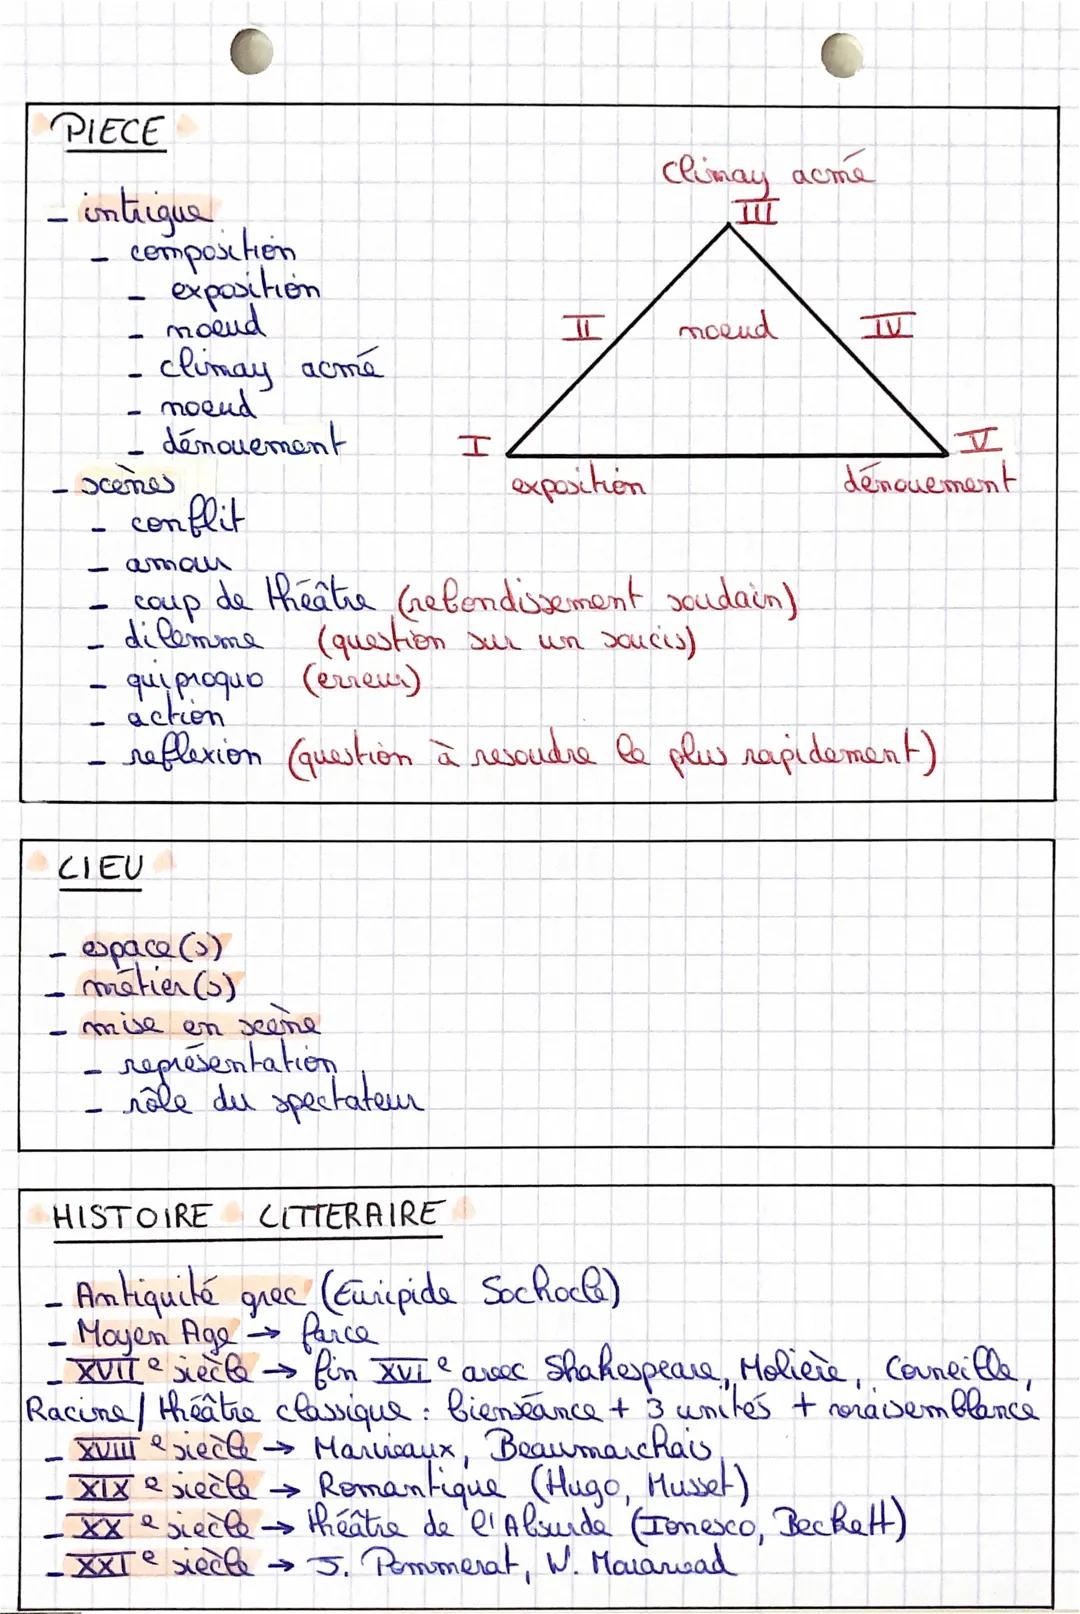 PIECE
Climax acmé
III
- intrigue
- composition
- exposition
- noeud
II
noeud
IV
- climax acmé
- noeud
- dénouement
I
V
exposition
dénouement
- scènes
- conflit
- amour
- coup de théâtre (rebondissement soudain)
- dilemme (question sur un soucis)
- quiproquo (erreur)
- action
- reflexion (question à resoudre le plus rapidement)
LIEU
- espace(s)
- métier(s)
- mise en scène
- représentation
- rôle du spectateur
HISTOIRE LITTERAIRE
- Antiquité grec (Euripide Sochocle)
- Moyen Age → farce
- XVIIe siècle → fin XVIe avec Shakespeare, Molière, Corneille,
Racine / théâtre classique : bienséance + 3 unités + vraisemblance
- XVIIIe siècle → Marivaux, Beaumarchais
- XIXe siècle → Romantique (Hugo, Musset)
- XXe siècle → théâtre de l'Absurde (Ionesco, Beckett)
- XXIe siècle → J. Pommerat, W. Mouawad